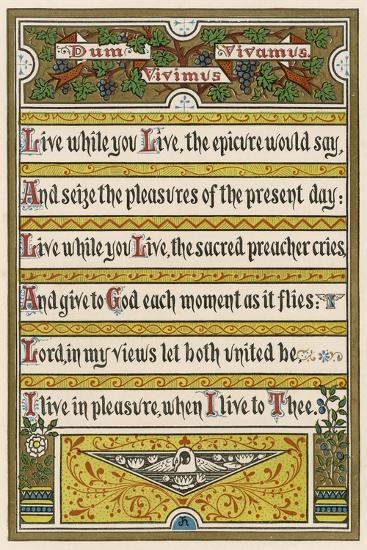 Dum Vivimus Vivamus.
Live while you Live, the epicure would say,
And seize the pleasures of the present day:
Live while you Live, the sacred preacher cries,
And give to God each moment as it flies:
Lord, in my views let both united be
I live in pleasure, when I live to Thee.